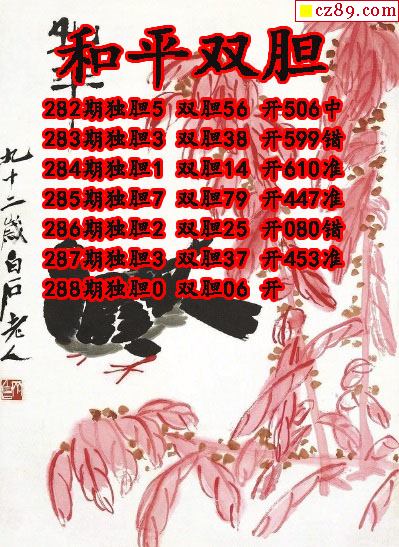 cz89.com
和平双胆
282期独胆5 双胆56 开506中
283期独胆3 双胆38 开599错
284期独胆1 双胆14 开610准
285期独胆7 双胆79 开447准
286期独胆2 双胆25 开080错
287期独胆3 双胆37 开453准
288期独胆0 双胆06 开
九十二岁白石老人